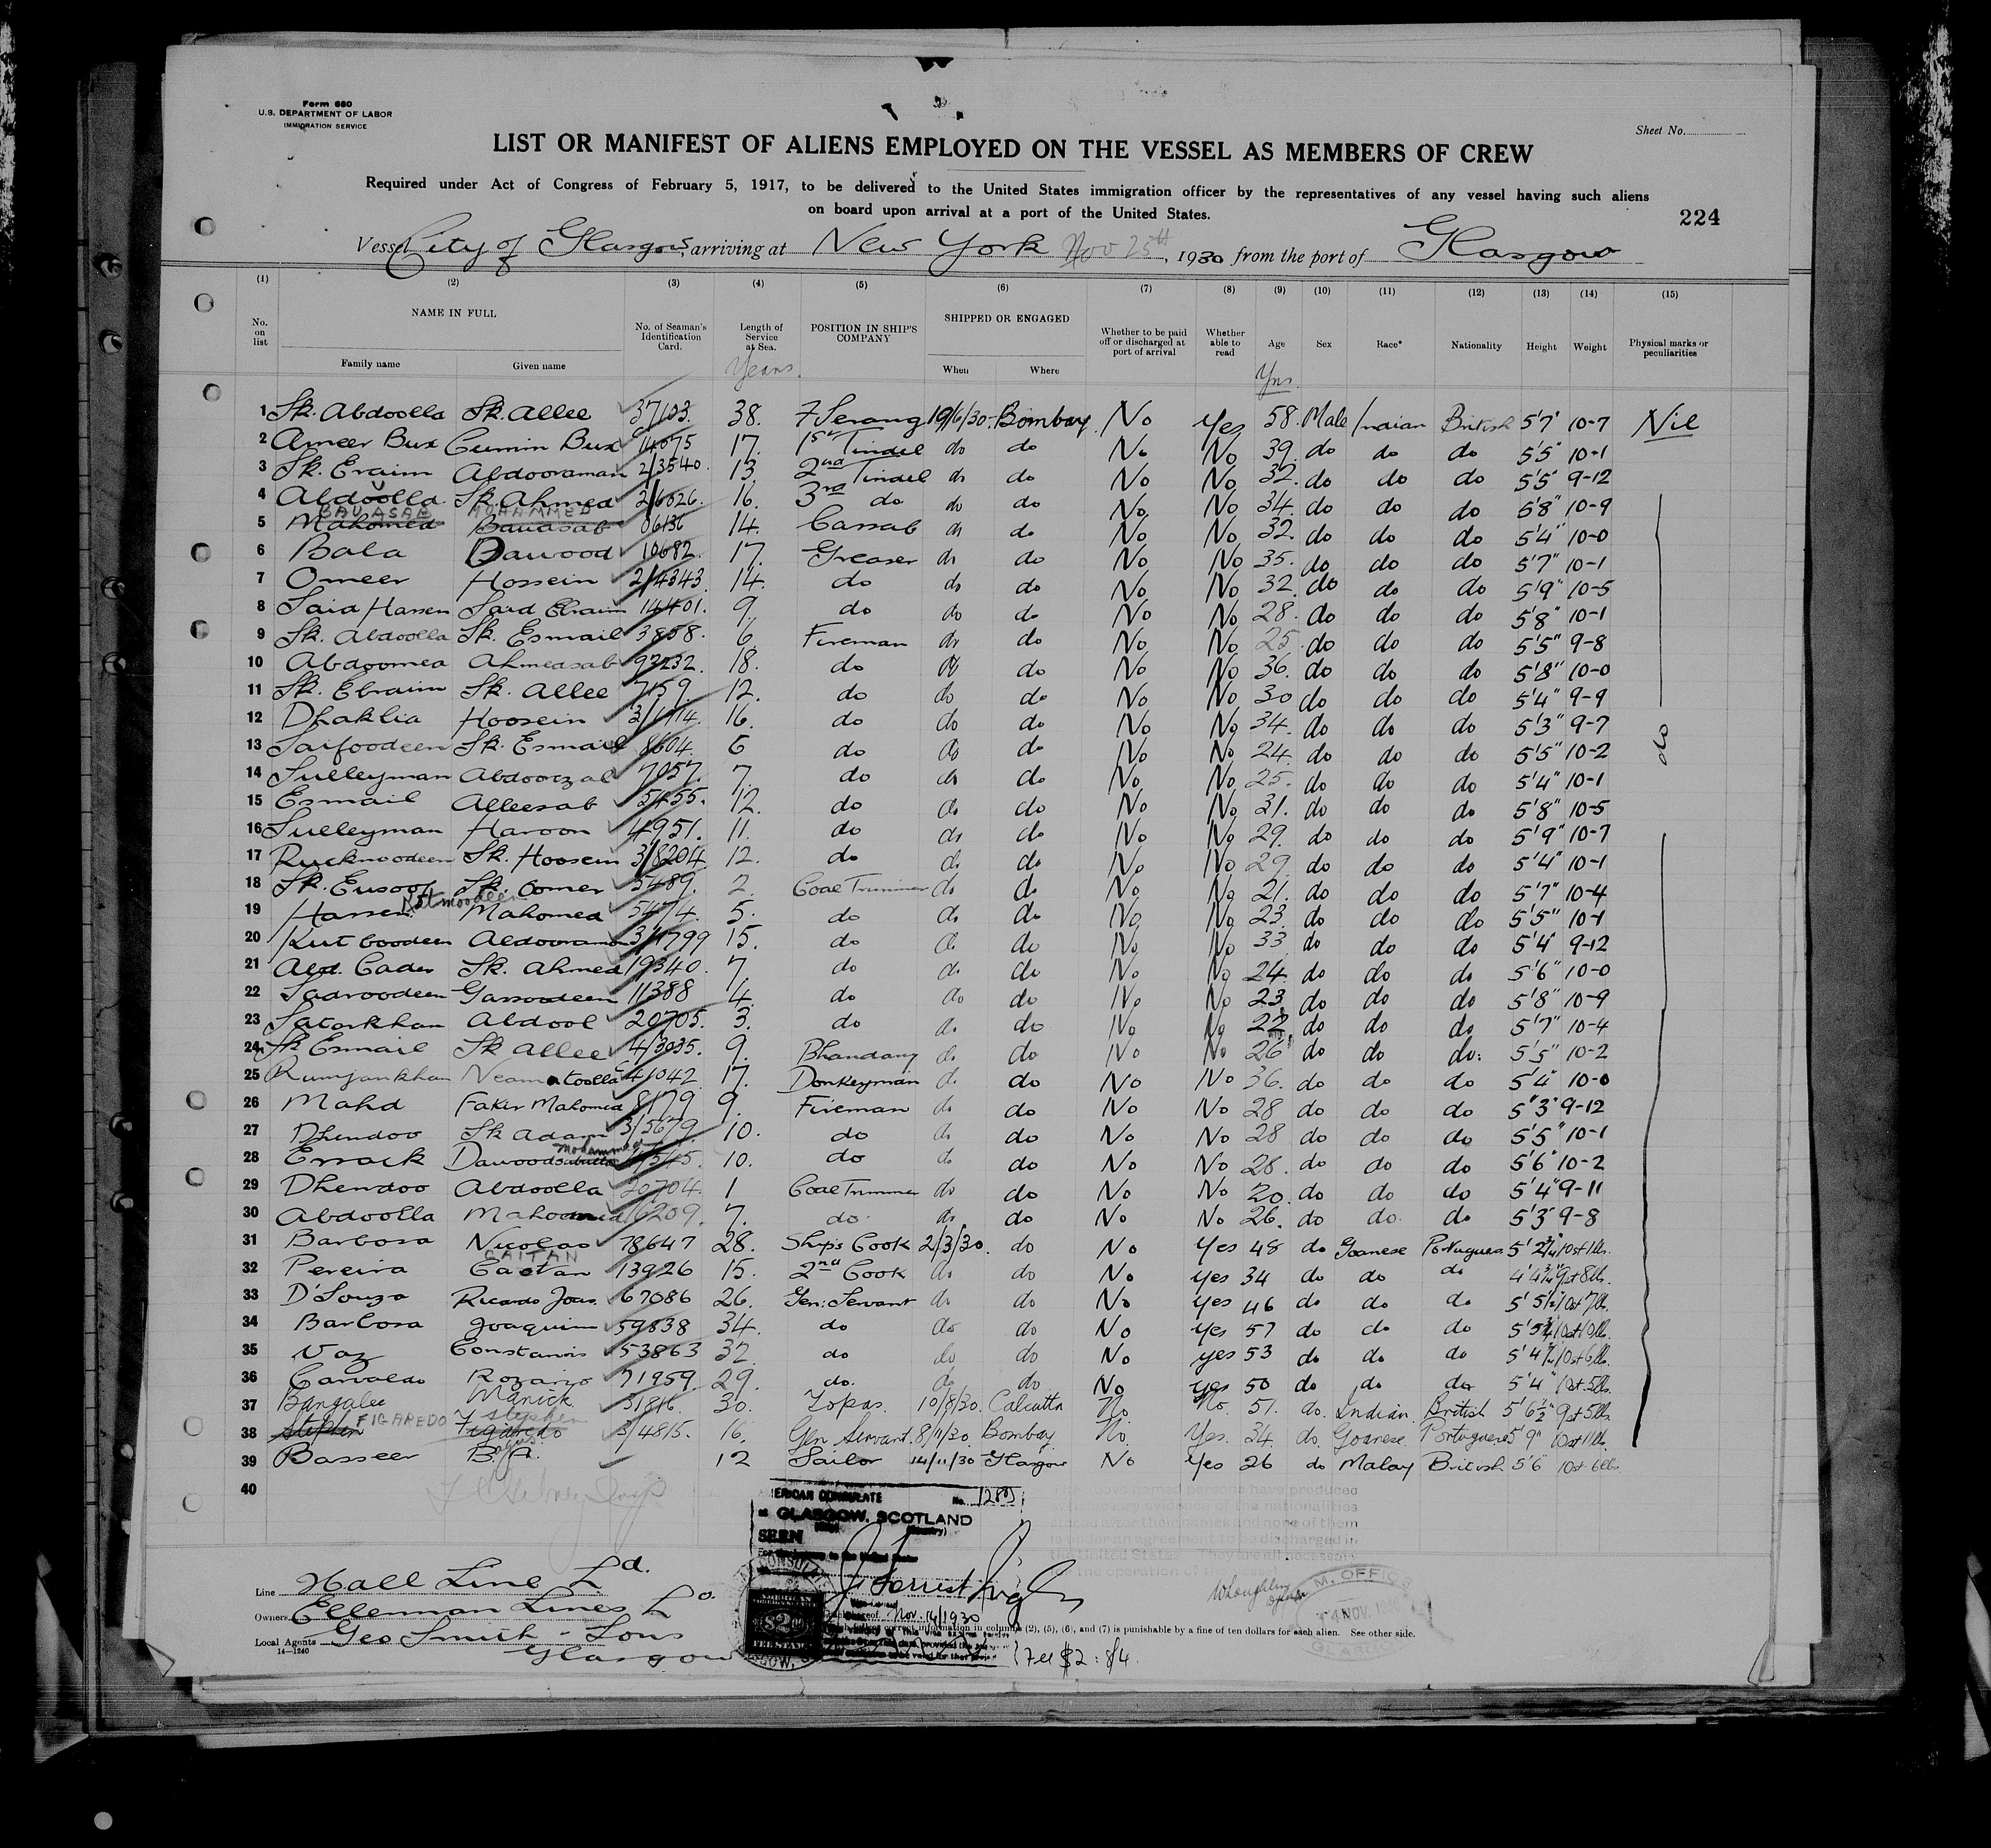 Form 680
U.S. DEPARTMENT OF LABOR
IMMIGRATION SERVICE
Sheet No.
LIST OR MANIFEST OF ALIENS EMPLOYED ON THE VESSEL AS MEMBERS OF CREW
Required under Act of Congress of February 5, 1917, to be delivered to the United States immigration officer by the representatives of any vessel having such aliens
on board upon arrival at a port of the United States.
224
Vessel City of Glasgow, arriving at New York Nov 25th, 1930 from the port of Glasgow
(1) (2) (3) (4) (5) (6) (7) (8) (9) (10) (11) (12) (13) (14) (15)
No. on list NAME IN FULL Family name Given name No. of Seaman's Identification Card. Length of Service at Sea. POSITION IN SHIP'S COMPANY SHIPPED OR ENGAGED When Where Whether to be paid off or discharged at port of arrival Whether able to read Age Sex Race* Nationality Height Weight Physical marks or peculiarities
Years. Yrs.
1 Sk. Abdoolla Sk. Allee 37103. 38. F Serang 19/6/30. Bombay No Yes 58. Male Indian British 5'7" 10-7 Nil
2 Ameer Bux Cumin Bux 14075 17. 1st Tindel do do No No 39. do do do 5'5" 10-1
3 Sk. Eraim Abdooraman 2/3540. 13. 2nd Tindel do do No No 32. do do do 5'5" 9-12
4 Abdoolla Sk. Ahmed 2/6026. 16. 3rd do do do No No 34. do do do 5'8" 10-9
BAVASAB MOHAMMED
5 Mahomed Bavasab 06136 14. Cassab do do No No 32. do do do 5'4" 10-0
6 Bala Dawood 10682. 17. Greaser do do No No 35. do do do 5'7" 10-1
7 Omeer Hossein 2/4343 14. do do do No No 32. do do do 5'9" 10-5
8 Said Hassen Said Ebraim 14401. 9. do do do No No 28. do do do 5'8" 10-1
9 Sk. Abdoolla Sk. Esmail 3858. 6. Fireman do do No No 25. do do do 5'5" 9-8
10 Abdoomea Ahmedsab 93232. 18. do do do No No 36. do do do 5'8" 10-0
11 Sk. Ebraim Sk. Allee 7159. 12. do do do No No 30 do do do 5'4" 9-9
12 Dhaklia Hoosein 3/1714. 16. do do do No No 34. do do do 5'3" 9-7
13 Saifoodeen Sk. Esmail 8604. 6 do do do No No 24. do do do 5'5" 10-2 do
14 Sulleyman Abdoorzal 7057. 7. do do do No No 25. do do do 5'4" 10-1
15 Esmail Alleesab 5455. 12. do do do No No 31. do do do 5'8" 10-5
16 Sulleyman Haroon 4951. 11. do do do No No 29. do do do 5'9" 10-7
17 Rucknoodeen Sk. Hoosein 3/8204 12. do do do No No 29. do do do 5'4" 10-1
18 Sk. Eusoof Sk. Oomer 5489. 2. Coal Trimmer do do No No 21. do do do 5'7" 10-4
19 Hassen Mahomed 5474. 5. do do do No No 23. do do do 5'5" 10-1
20 Kutboodeen Abdooraman 3/1799 15. do do do No No 33 do do do 5'4" 9-12
21 Abd. Cader Sk. Ahmed 19340. 7. do do do No No 24. do do do 5'6" 10-0
22 Sadroodeen Gassoodeen 11388 4. do do do No No 23 do do do 5'8" 10-9
23 Satarkhan Abdool 20705. 3. do do do No No 22 do do do 5'7" 10-4
24 Sk Esmail Sk Allee 4/3035. 9. Bhandary do do No No 26 do do do. 5'5" 10-2
25 Rumjankhan Neamatoolla 41042 17. Donkeyman do do No No 36. do do do 5'4" 10-0
26 Mahd Faker Mahomed 8179 9. Fireman do do No No 28 do do do 5"3" 9-12
27 Dhendoo Sk Adam 3/5679. 10. do do do No No 28 do do do 5'5" 10-1
Mohammed
28 Essack Dawood 10. do do do No No 28. do do do 5'6" 10-2
29 Dhendoo Abdoolla 20704. 1 Coal Trimmer do do No No 20. do do do 5'4" 9-11
30 Abdoolla Mahomed 16209. 7. do do do No No 26. do do do 5'3" 9-8
31 Barbosa Nicolao 78647 28. Ship's Cook 2/3/30. do No Yes 48 do Goanese Portuguese 5' 2¾" 10st 1lb.
CAITAN
32 Pereira Caetan 13926 15. 2nd Cook do do No Yes 34 do do do 4' 4¾" 9st 8lb.
33 D'Souza Ricardo Joas. 67086 26. Gen: Servant do do No Yes 46 do do do 5' 5½" 10st 7lb.
34 Barbosa Joaquim 59838 34. do do do No Yes 57 do do do
35 Vaz 53863 32. do do do No yes 53 do do do 10st 6lb.
36 Carvaldo Rozario 71959 29. do. do do No yes 50 do do do 5'4" 10st. 5lb.
37 Bangalee Manick 31816. 30. Topas. 10/8/30. Calcutta No. No. 51. do. Indian. British 5' 6½" 9st 5lb.
38 Stephen FIGAREDO Figaredo Stephen 3/4815. 16. Gen Servant. 8/11/30 Bombay. No. Yes. 34. do. Goanese. Portuguese 5' 9" 10st 11lb.
39 Basseer B.A. 12 Sailor 14/11/30 Glasgow No Yes 26 do Malay British 5'6" 10st. 6lb.
40
AMERICAN CONSULATE No. 1285
at GLASGOW, SCOTLAND
SEEN
The above named persons have produced
satisfactory evidence of the nationalities
stated after their names and none of them
is under an agreement to be discharged in
the United States. They are all necessary
for the operation of the
Nov. 14/1930
Line Hall Line Ld.
Owners Ellerman Lines Ld.
Local Agents Geo Smith & Sons
Glasgow
14—1240
correct information in columns (2), (5), (6), and (7) is punishable by a fine of ten dollars for each alien. See other side.
Fee $2 : 8/4.
M. OFFICE
14 NOV. 1930
GLASGOW